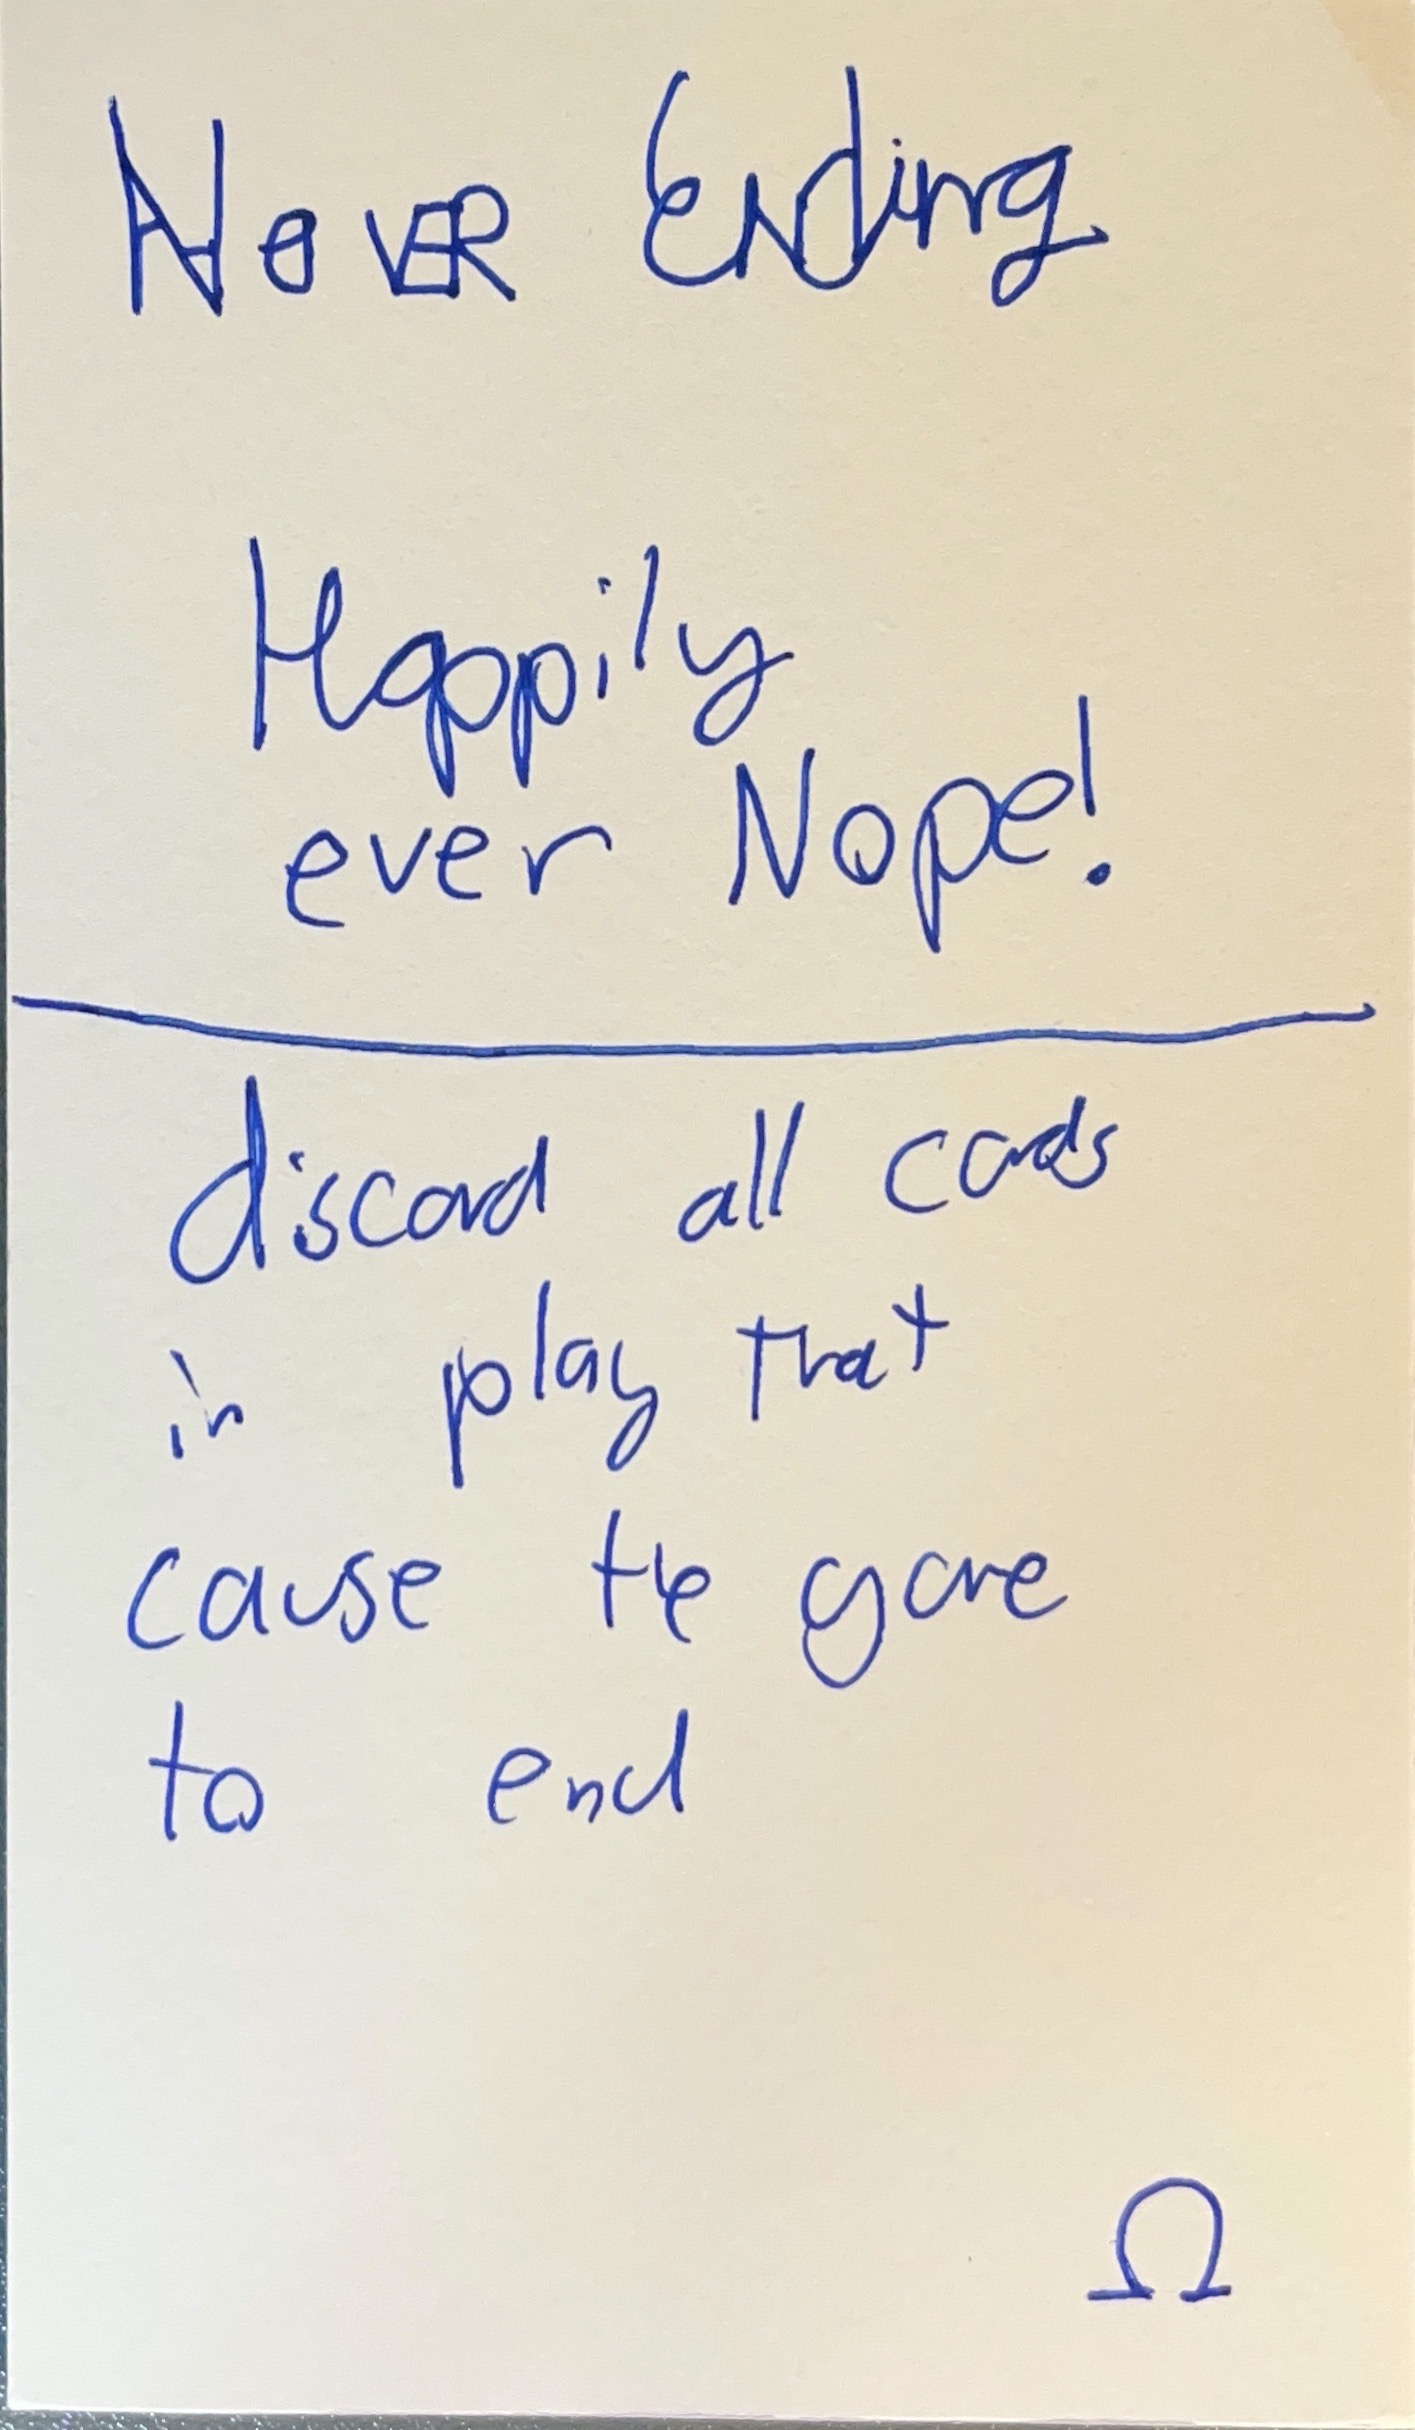 Never Ending
Happily
ever Nope!
discard all cards
in play that
cause the game
to end
Ω